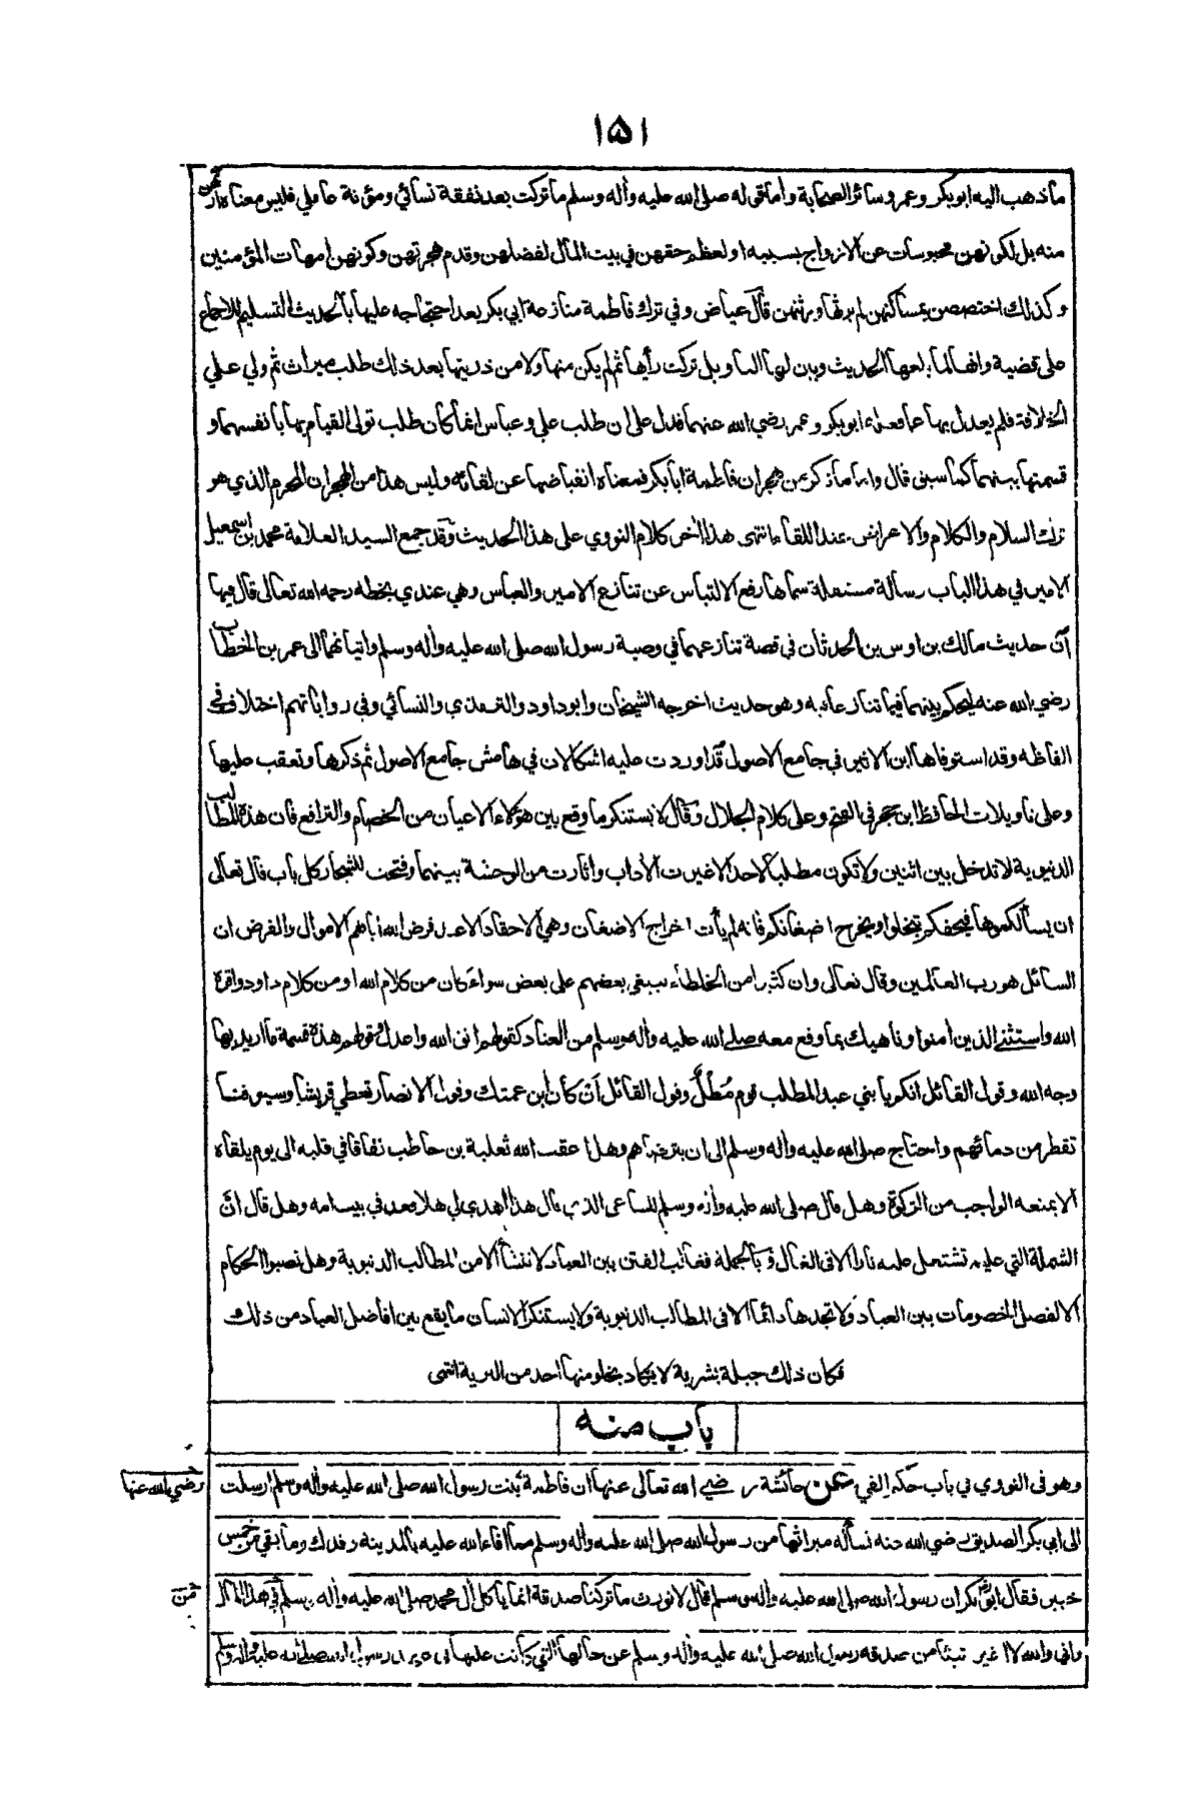 ١٥١
ما ذهب اليه ابو بكر و عمر و سائر الصحابة و اما قوله صلى الله عليه واله وسلم ما تركت بعد نفقة نسائي و مؤنة عاملي فليس معناه ارثهن
منه بل لكونهن محبوسات عن الازواج بسببه او لعظم حقهن في بيت المال لفضلهن وقدم هجرتهن وكونهن امهات المؤمنين
وكذلك اختصصن بمساكنهن لم يرثها ورثتهن قال عياض وفي ترك فاطمة منازعة ابي بكر بعد احتجاجه عليها بالحديث التسليم للاجماع
على قضية وانها لما بلغها الحديث وبين لها التاويل تركت رأيها ثم لم يكن منها ولا من ذريتها بعد ذلك طلب ميراث ثم ولي علي
الخلافة فلم يعدل بها عما فعله ابو بكر وعمر رضي الله عنهما فدل على ان طلب علي وعباس انما كان طلب تولى القيام بها بانفسهما و
قسمتها بينهما كما سبق قال واما ما ذكر من هجران فاطمة ابا بكر فمعناه انقباضها عن لقائه وليس هذا من الهجران المحرم الذي هو
ترك السلام والكلام والاعراض عند اللقاء انتهى هذا اخر كلام النووي على هذا الحديث وقد جمع السيد العلامة محمد بن اسمعيل
الامير في هذا الباب رسالة مستقلة سماها رفع الالتباس عن تنازع الامير والعباس وهي عندي بخطه رحمه الله تعالى قال فيها
ان حديث مالك بن اوس بن الحدثان في قصة تنازعهما في وصية رسول الله صلى الله عليه واله وسلم واتيانهما الى عمر بن الخطاب
رضي الله عنه ليحكم بينهما فيما تنازعا به وهو حديث اخرجه الشيخان وابو داود والترمذي والنسائي وفي رواياتهم اختلاف في
الفاظه وقد استوفاها ابن الاثير في جامع الاصول قد اوردت عليه اشكالات في هامش جامع الاصول ثم ذكرها وتعقب عليها
وعلى تاويلات الحافظ ابن حجر في الفتح وعلى كلام الجلال وقال لا يستنكر ما وقع بين هؤلاء الاعيان من الخصام والترافع فان هذه المطالب
الدنيوية لا تدخل بين اثنين ولا تكون مطلبا لاحد الا غيرت الاداب واثارت من الوحشة بينهما وفتحت للشجار كل باب قال تعالى
ان يسألكموها فيحفكم تبخلوا ويخرج اضغانكم فانه لم يأت اخراج الاضغان وهي الاحقاد الا عند فرض الله اياهم الاموال والفرض ان
السائل هو رب العالمين وقال تعالى وان كثيرا من الخلطاء ليبغي بعضهم على بعض سواء كان من كلام الله او من كلام داود واقره
الله واستثنى الذين امنوا وناهيك بما وقع معه صلى الله عليه واله وسلم من العناد كقولهم اتق الله واعدل وقولهم هذه قسمة ما اريد بها
وجه الله وقول القائل انكم يا بني عبد المطلب قوم مُطْلٌ وقول القائل ان كان ابن عمتك وقول الانصار تعطي قريشا وسيوفنا
تقطر من دمائهم واحتاج صلى الله عليه واله وسلم الى ان يترضاهم وهل اعقب الله ثعلبة بن حاطب نفاقا في قلبه الى يوم يلقاه
الا بمنعه الواجب من الزكوة وهل قال صلى الله عليه واله وسلم للساعي الذي قال هذا اهدي لي هلا قعد في بيت امه وهل قال ان
الشملة التي عليه تشتعل عليه نارا الا في الغال و بالجملة فغالب الفتن بين العباد لا تنشأ الا من المطالب الدنيوية وهل نصبوا الحكام
الا لفصل الخصومات بين العباد ولا تجدها دائما الا في المطالب الدنيوية ولا يستنكر الانسان ما يقع بين افاضل العباد من ذلك
فكان ذلك جبلة بشرية لا يكاد يخلو منها احد من البرية انتهى
باب منه
وهو في النووي في باب حكم الفي عن عائشة رضي الله تعالى عنها ان فاطمة بنت رسول الله صلى الله عليه واله وسلم ارسلت
رضي الله عنها
الى ابي بكر الصديق رضي الله عنه تسأله ميراثها من رسول الله صلى الله عليه واله وسلم مما افاء الله عليه بالمدينة وفدك وما بقي من خمس
خيبر فقال ابو بكر ان رسول الله صلى الله عليه واله وسلم قال لا نورث ما تركنا صدقة انما ياكل ال محمد صلى الله عليه واله وسلم في هذا المال
من
واني والله لا اغير شيئا من صدقة رسول الله صلى الله عليه واله وسلم عن حالها التي كانت عليها في عهد رسول الله صلى الله عليه واله وسلم